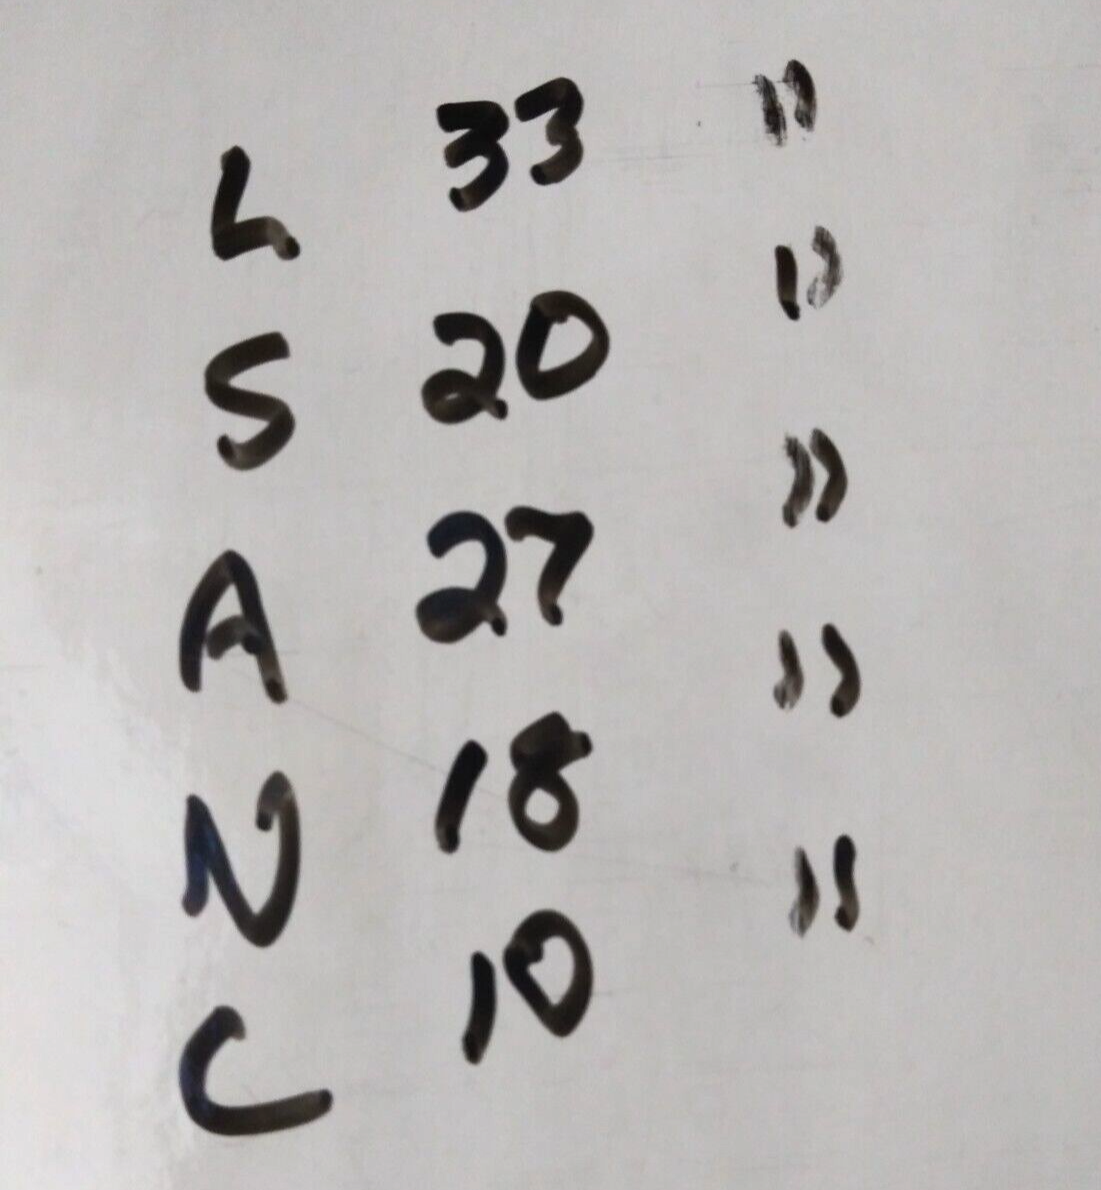 L 33 "
S 20 "
A 27 "
N 18 "
C 10 "